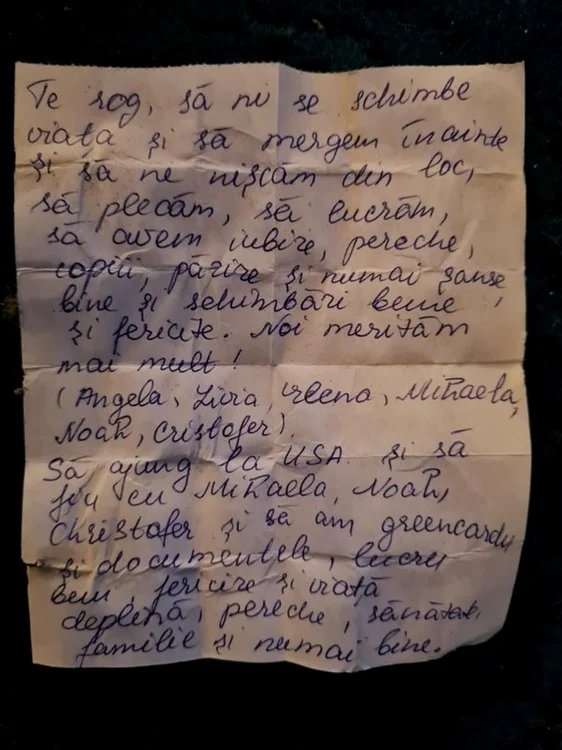 Te rog, să ni se schimbe
viata și să mergem înainte
și să ne nișcăm din loc,
să plecăm, să lucrăm,
să avem iubire, pereche,
copiii, părire și numai șanse,
bine și schimbări bune
și fericite. Noi merităm
mai mult!
(Angela, Livia, Irlena, Mihaela,
Noah, Cristofer)
Să ajung la USA și să
fiu cu Mihaela, Noah,
Christofer și să am greencardu
și documentele, lucru
bun, fericire și viață
deplină, pereche, sănătate,
familie și numai bine.